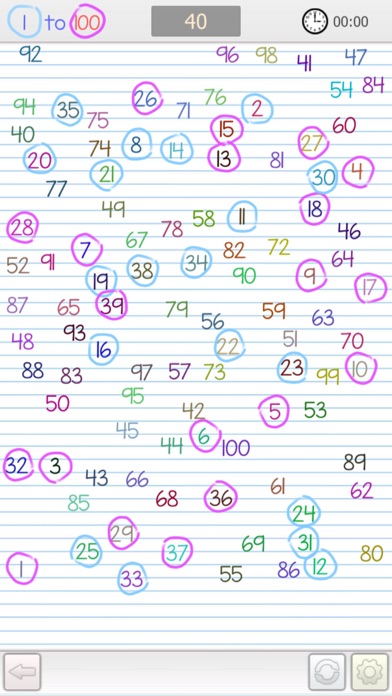 1 to 100 40 00:00
92 96 98 41 47
54 84
94 35 75 26 71 76 2
40 15 60
20 74 8 14 13 81 27
77 21 30 4
49 58 11 18
28 78 46
7 67 82 72 64
52 91 38 34 90 9
19 17
87 65 39 79 56 59 63
48 93 16 22 51 70
88 83 97 57 73 23 99 10
50 95 42 5 53
45 44 6 100
32 3 43 66 89
85 68 36 61 62
29 24
25 37 69 31 80
1 33 55 86 12